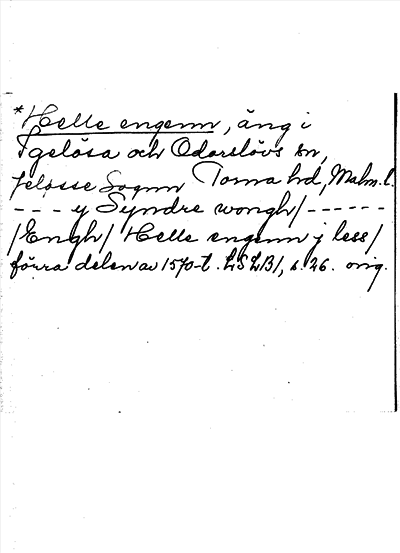 *Helle engenn, äng i
Igelösa och Odarslövs sn,
Jeløsse Sognn Torna hd, Malm.l.
--- y Syndre wongh/ ------
/Engh/ Helle engenn j less/
förra delen av 1570-t. LSLB1, s. 26. orig.